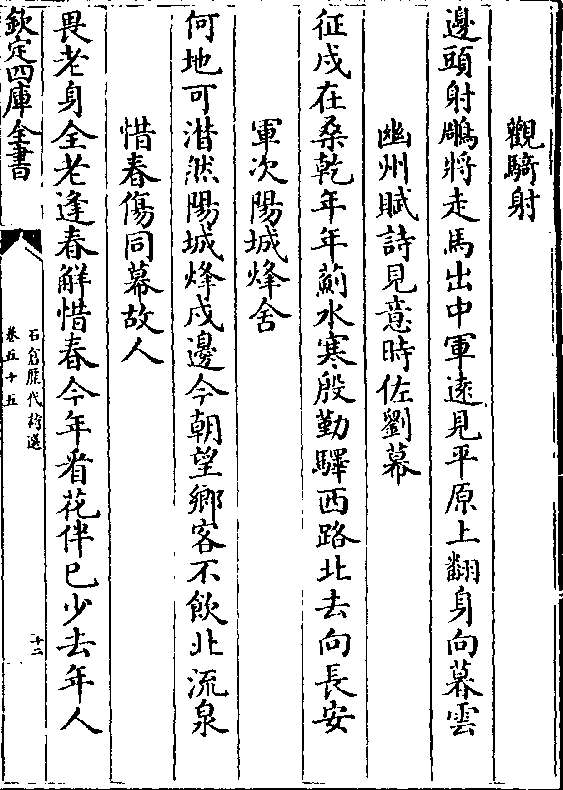 觀騎射
邊頭射鵰將走馬出中軍遠見平原上翻身向暮雲
幽州賦詩見意時佐劉幕
征戍在桑乾年年薊水寒殷勤驛西路北去向長安
軍次陽城烽舍
何地可潸然陽城烽戍邊今朝望鄉客不飲北流泉
惜春傷同幕故人
畏老身全老逢春解惜春今年看花伴已少去年人
欽定四庫全書
石倉歷代詩選
卷五十五
十二